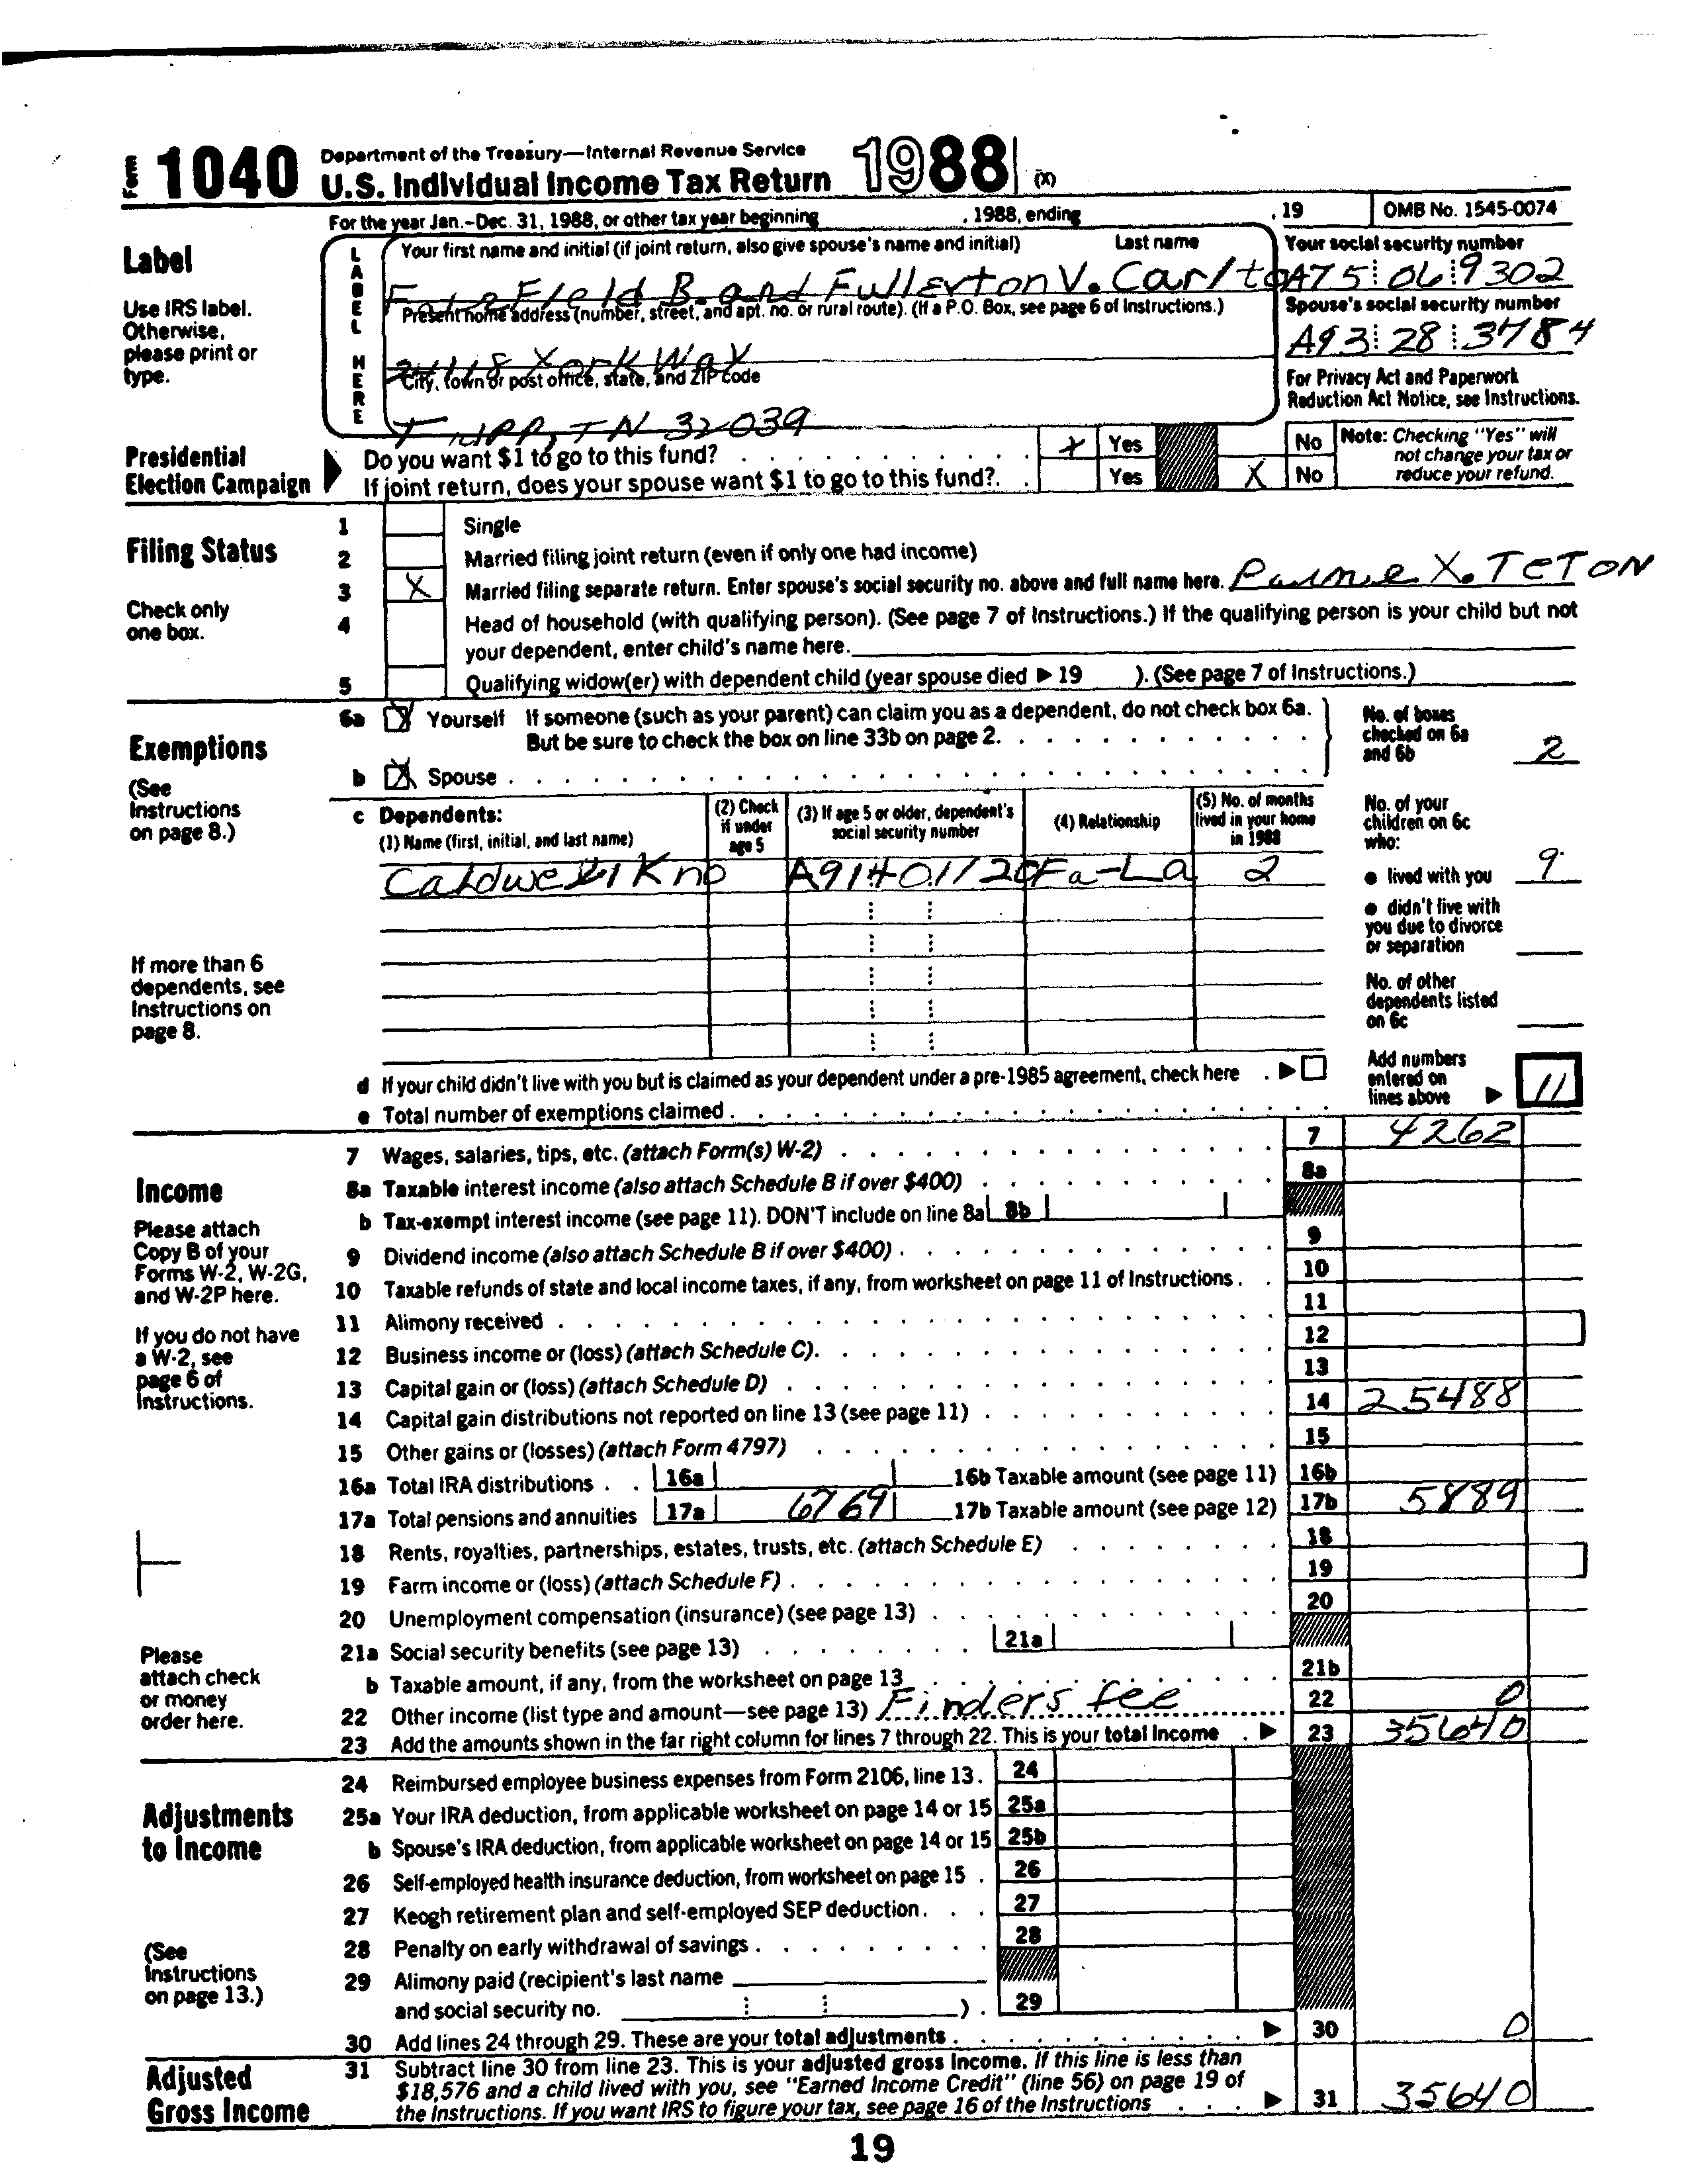 Form 1040 Department of the Treasury—Internal Revenue Service
U.S. Individual Income Tax Return 1988 (X)
For the year Jan.–Dec. 31, 1988, or other tax year beginning , 1988, ending , 19 OMB No. 1545-0074
Label
Use IRS label. Otherwise, please print or type.
LABEL HERE
Your first name and initial (if joint return, also give spouse's name and initial) Last name
B. and Fullerton V. Carlto
Your social security number
A75 06 9302
Present home address (number, street, and apt. no. or rural route). (If a P.O. Box, see page 6 of Instructions.)
York Way
Spouse's social security number
A93 28 3784
City, town or post office, state, and ZIP code
TN 32039
For Privacy Act and Paperwork Reduction Act Notice, see Instructions.
Presidential Election Campaign
Do you want $1 to go to this fund? X Yes No
If joint return, does your spouse want $1 to go to this fund?. Yes X No
Note: Checking "Yes" will not change your tax or reduce your refund.
Filing Status
Check only one box.
1 Single
2 Married filing joint return (even if only one had income)
3 X Married filing separate return. Enter spouse's social security no. above and full name here. X. TETON
4 Head of household (with qualifying person). (See page 7 of Instructions.) If the qualifying person is your child but not
your dependent, enter child's name here.
5 Qualifying widow(er) with dependent child (year spouse died ▶ 19 ). (See page 7 of Instructions.)
Exemptions
(See Instructions on page 8.)
6a X Yourself If someone (such as your parent) can claim you as a dependent, do not check box 6a.
But be sure to check the box on line 33b on page 2.
b X Spouse
No. of boxes checked on 6a and 6b 2
c Dependents:
(1) Name (first, initial, and last name)
(2) Check if under age 5
(3) If age 5 or older, dependent's social security number
(4) Relationship
(5) No. of months lived in your home in 1988
Kno A91401120 Fa-La 2
No. of your children on 6c who:
● lived with you 9
● didn't live with you due to divorce or separation
No. of other dependents listed on 6c
If more than 6 dependents, see Instructions on page 8.
d If your child didn't live with you but is claimed as your dependent under a pre-1985 agreement, check here ▶
e Total number of exemptions claimed
Add numbers entered on lines above ▶ 11
Income
Please attach Copy B of your Forms W-2, W-2G, and W-2P here.
If you do not have a W-2, see page 6 of Instructions.
Please attach check or money order here.
7 Wages, salaries, tips, etc. (attach Form(s) W-2) 7 4262
8a Taxable interest income (also attach Schedule B if over $400) 8a
b Tax-exempt interest income (see page 11). DON'T include on line 8a 8b
9 Dividend income (also attach Schedule B if over $400) 9
10 Taxable refunds of state and local income taxes, if any, from worksheet on page 11 of Instructions 10
11 Alimony received 11
12 Business income or (loss) (attach Schedule C) 12
13 Capital gain or (loss) (attach Schedule D) 13
14 Capital gain distributions not reported on line 13 (see page 11) 14 25488
15 Other gains or (losses) (attach Form 4797) 15
16a Total IRA distributions 16a 16b Taxable amount (see page 11) 16b
17a Total pensions and annuities 17a 6769 17b Taxable amount (see page 12) 17b 5889
18 Rents, royalties, partnerships, estates, trusts, etc. (attach Schedule E) 18
19 Farm income or (loss) (attach Schedule F) 19
20 Unemployment compensation (insurance) (see page 13) 20
21a Social security benefits (see page 13) 21a
b Taxable amount, if any, from the worksheet on page 13 21b
22 Other income (list type and amount—see page 13) Finders fee 22 0
23 Add the amounts shown in the far right column for lines 7 through 22. This is your total income ▶ 23 35640
Adjustments to Income
(See Instructions on page 13.)
24 Reimbursed employee business expenses from Form 2106, line 13. 24
25a Your IRA deduction, from applicable worksheet on page 14 or 15 25a
b Spouse's IRA deduction, from applicable worksheet on page 14 or 15 25b
26 Self-employed health insurance deduction, from worksheet on page 15 26
27 Keogh retirement plan and self-employed SEP deduction 27
28 Penalty on early withdrawal of savings 28
29 Alimony paid (recipient's last name
and social security no. ) 29
30 Add lines 24 through 29. These are your total adjustments ▶ 30 0
Adjusted Gross Income
31 Subtract line 30 from line 23. This is your adjusted gross income. If this line is less than
$18,576 and a child lived with you, see "Earned Income Credit" (line 56) on page 19 of
the Instructions. If you want IRS to figure your tax, see page 16 of the Instructions ▶ 31 35640
19